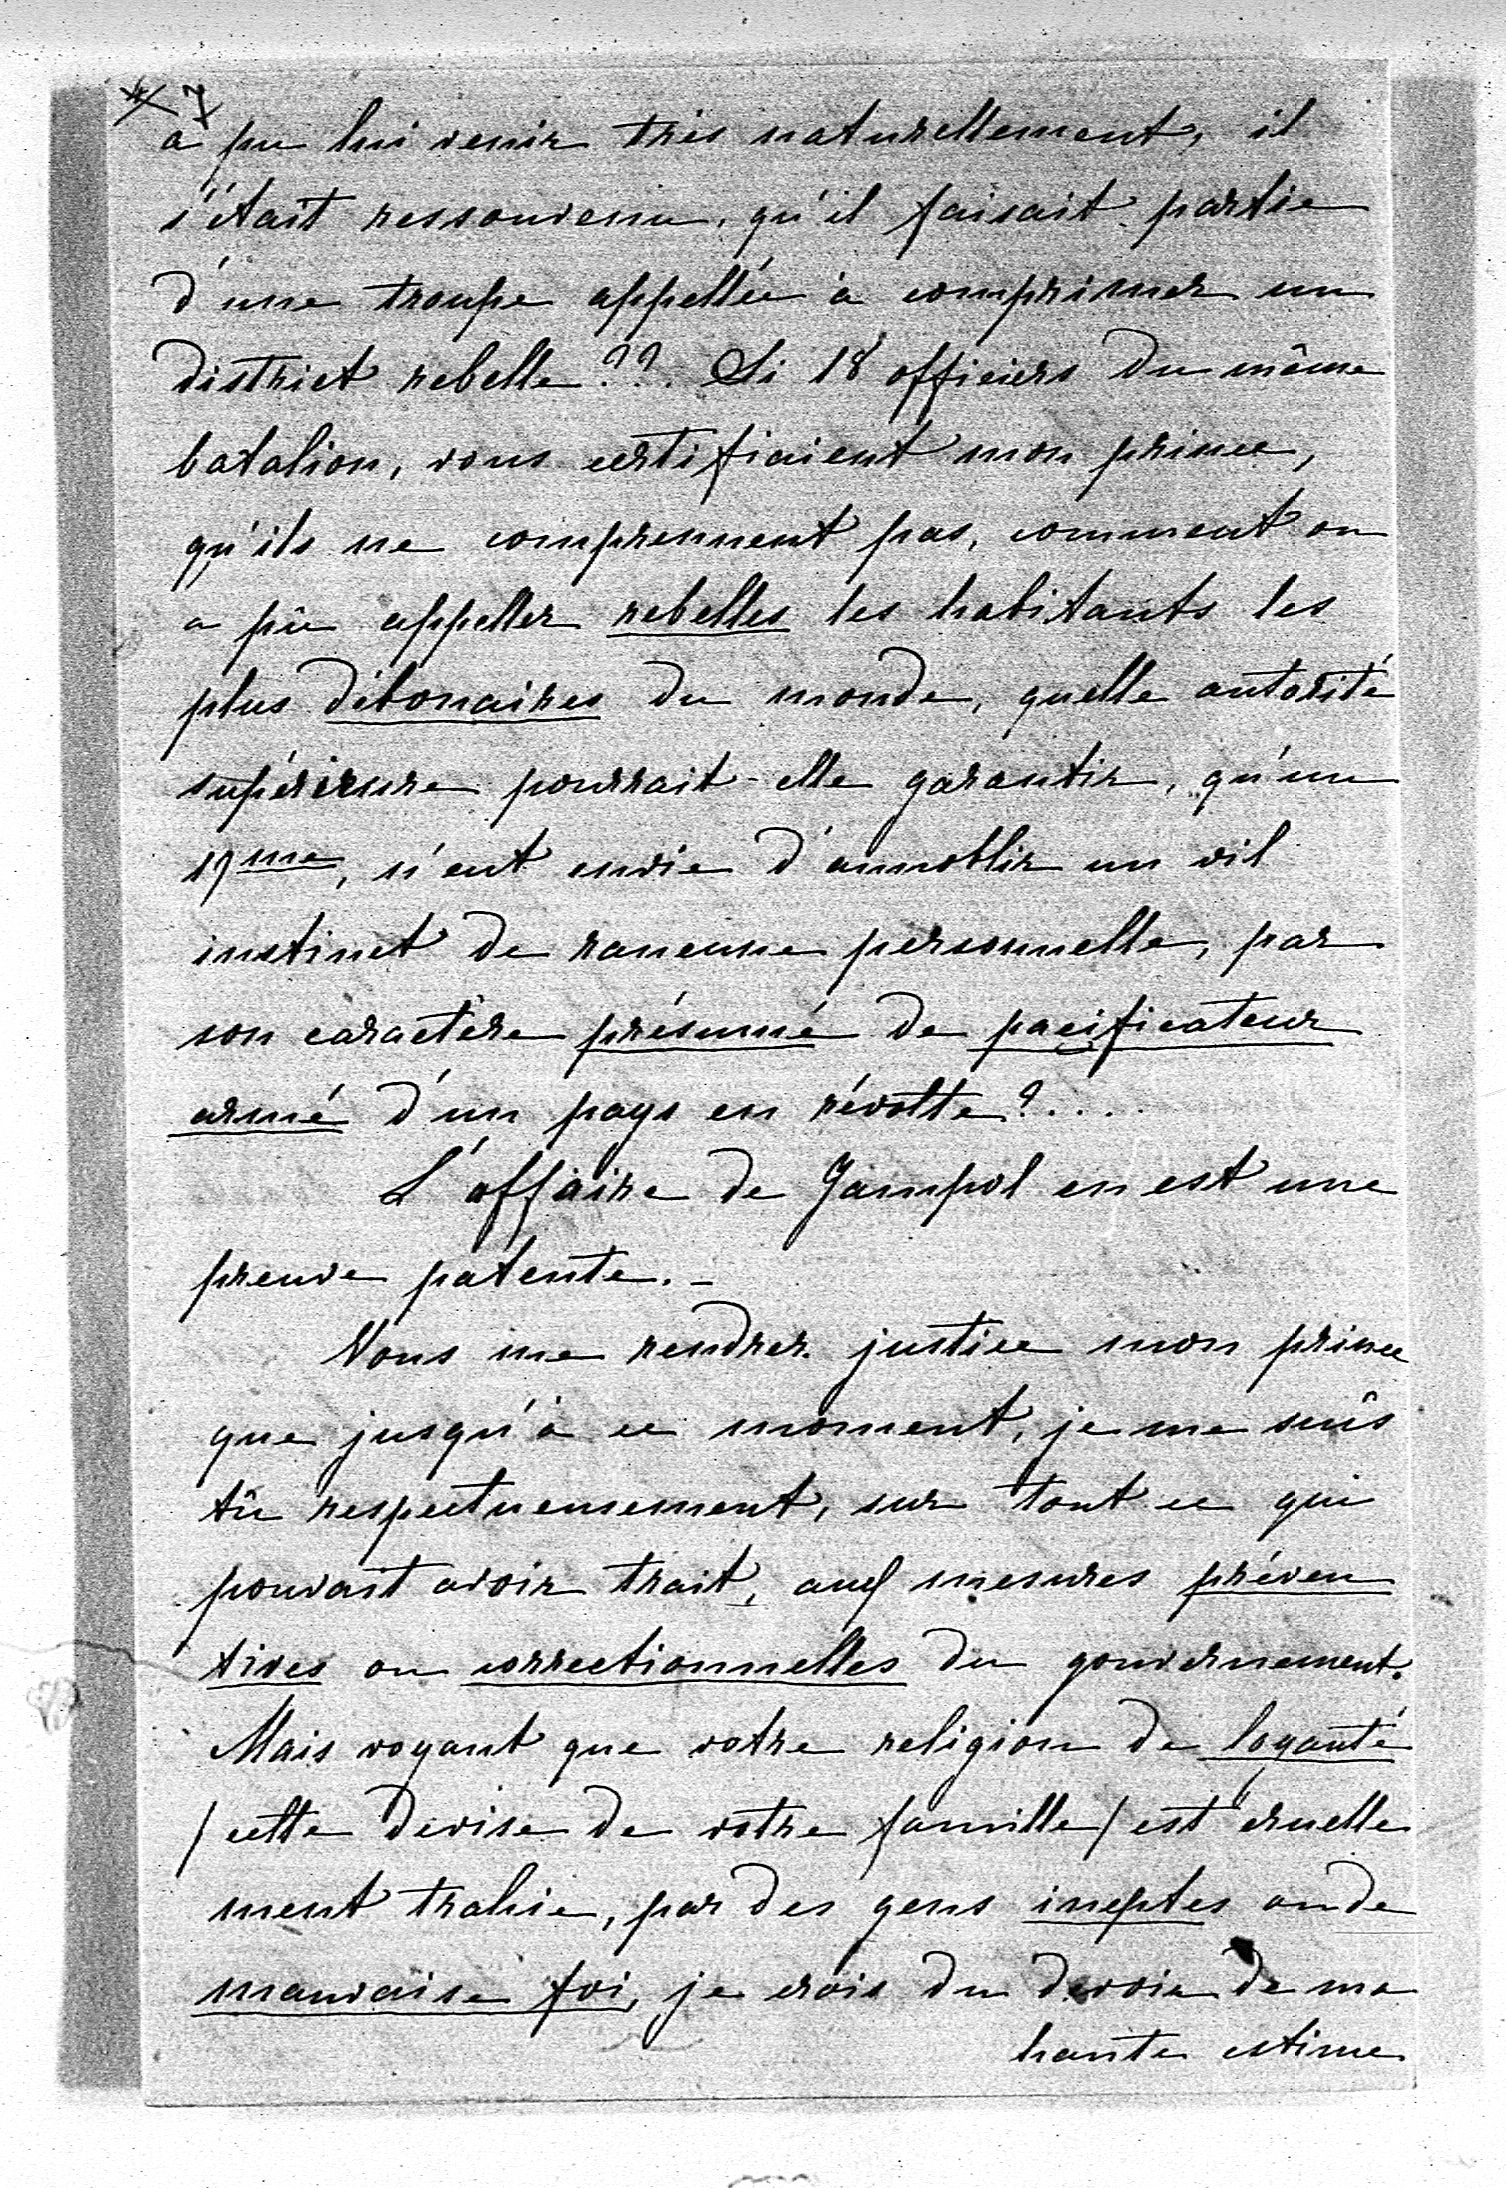 7
a pu lui venir très naturellement, il
s'était ressouvenu, qu'il faisait partie
d'une troupe appellée à comprimer un
district rebelle ??. Si 18 officiers du même
batalion, vous certifiaient mon prince,
qu'ils ne comprennent pas, comment on
a pû appeller rebelles les habitants les
plus débonaires du monde, quelle autorité
supérieure pourrait-elle garantir, qu'un
19me, n'eut envie d'annoblir un vil
instinct de rancune personnelle, par
son caractère présumé de pacificateur
armé d'un pays en révolte ?....
L'affaire de Jampol en est une
preuve patente. -
Vous me rendrez justice mon prince
que jusqu'à ce moment, je me suis
tû respectueusement, sur tout ce qui
pouvait avoir trait, aux mesures préven
tives ou correctionnelles du gouvernement.
Mais voyant que votre religion de loyauté
/ cette devise de votre famille / est cruelle
ment trahie, par des gens ineptes ou de
mauvaise foi, je crois du devoir de ma
haute estime